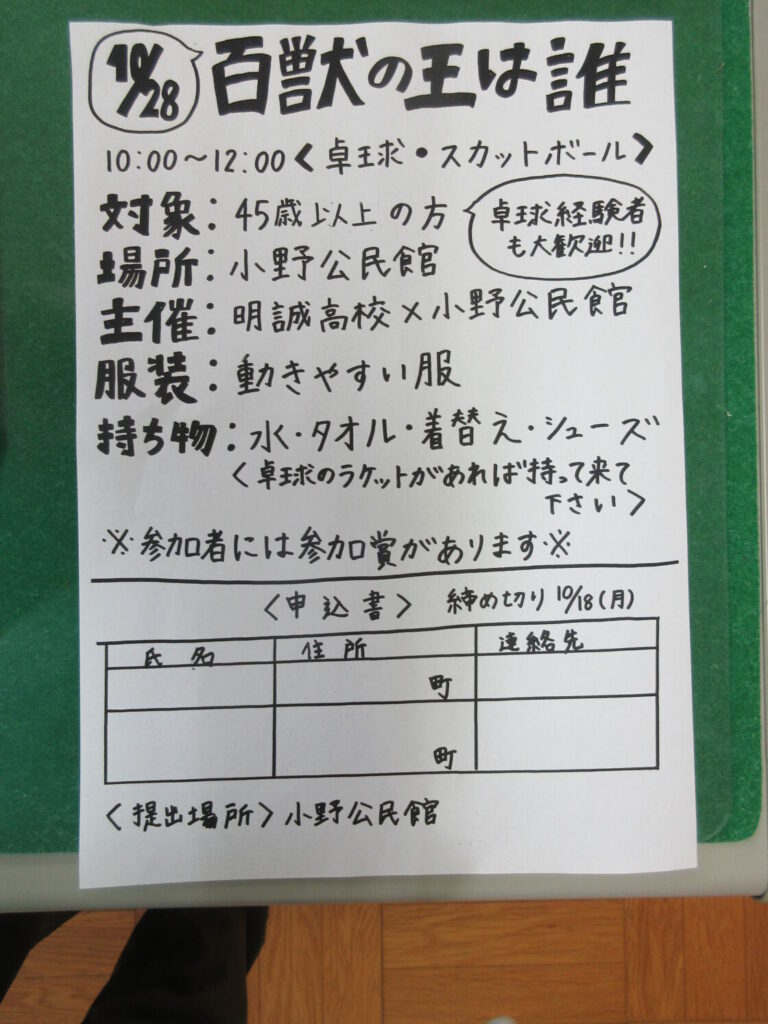 10/28 百獣の王は誰
10:00～12:00〈 卓球・スカットボール 〉
対象：45歳以上の方
卓球経験者
も大歓迎!!
場所：小野公民館
主催：明誠高校×小野公民館
服装：動きやすい服
持ち物：水・タオル・着替え・シューズ
〈卓球のラケットがあれば持って来て
下さい〉
※参加者には参加賞があります※
〈申込書〉 締め切り 10/18(月)
氏名 住所 連絡先
町
町
〈提出場所〉小野公民館